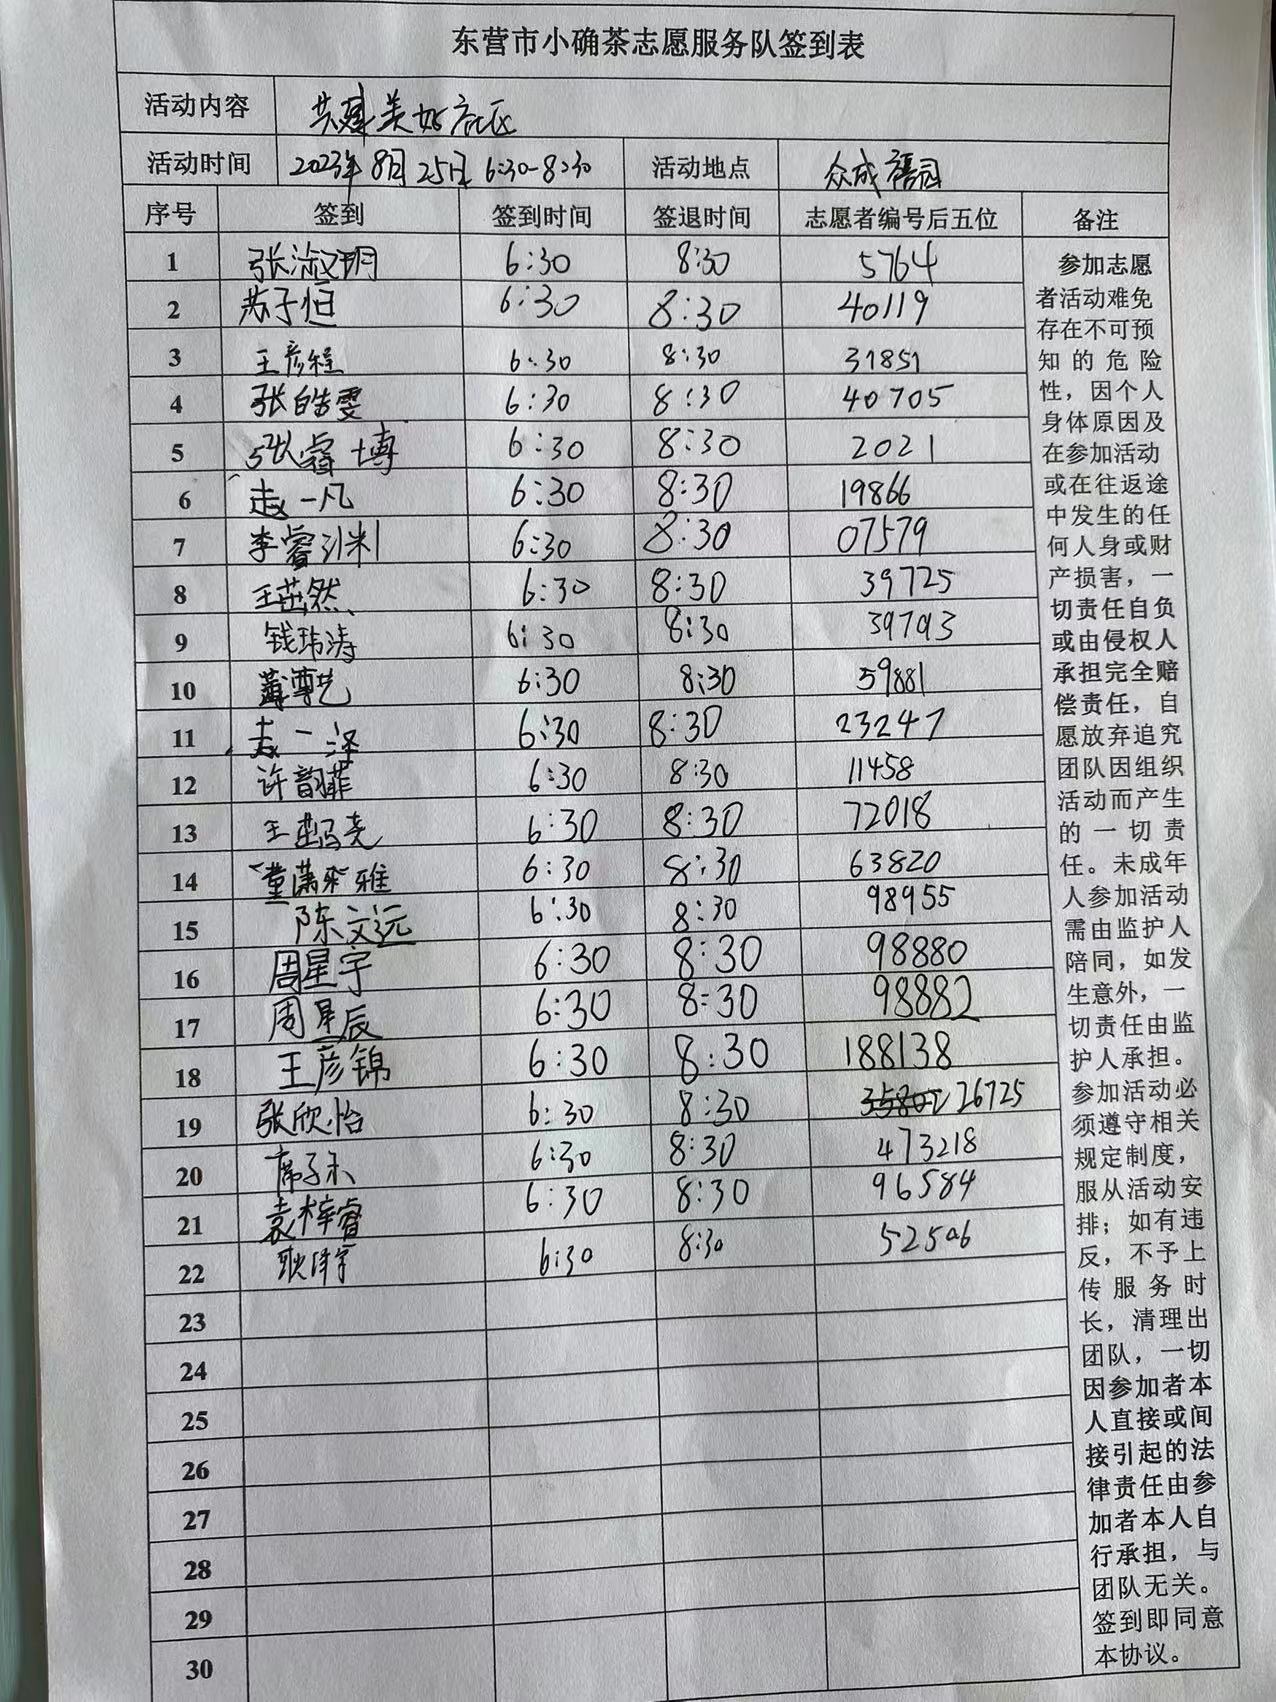 东营市小确茶志愿服务队签到表
活动内容 共建美好社区
活动时间 2023年8月25日 6:30-8:30 活动地点 众成福园
序号 签到 签到时间 签退时间 志愿者编号后五位 备注
1 张淑玥 6:30 8:30 5764
2 苏子恒 6:30 8:30 40119
3 王彦程 6:30 8:30 31851
4 张皓雯 6:30 8:30 40705
5 张睿博 6:30 8:30 2021
6 赵一凡 6:30 8:30 19866
7 李睿 6:30 8:30 07579
8 王茁然 6:30 8:30 39725
9 钱玮涛 6:30 8:30 39793
10 6:30 8:30 59881
11 一泽 6:30 8:30 23247
12 许韵菲 6:30 8:30 11458
13 王 6:30 8:30 72018
14 董潇 雅 6:30 8:30 63820
15 陈文远 6:30 8:30 98955
16 周星宇 6:30 8:30 98880
17 周星辰 6:30 8:30 98882
18 王彦锦 6:30 8:30 188138
19 张欣怡 6:30 8:30 26725
20 席子禾 6:30 8:30 473218
21 袁梓睿 6:30 8:30 96584
22 耿泽宇 6:30 8:30 52506
23
24
25
26
27
28
29
30
参加志愿
者活动难免
存在不可预
知的危险
性，因个人
身体原因及
在参加活动
或在往返途
中发生的任
何人身或财
产损害，一
切责任自负
或由侵权人
承担完全赔
偿责任，自
愿放弃追究
团队因组织
活动而产生
的一切责
任。未成年
人参加活动
需由监护人
陪同，如发
生意外，一
切责任由监
护人承担。
参加活动必
须遵守相关
规定制度，
服从活动安
排；如有违
反，不予上
传服务时
长，清理出
团队，一切
因参加者本
人直接或间
接引起的法
律责任由参
加者本人自
行承担，与
团队无关。
签到即同意
本协议。